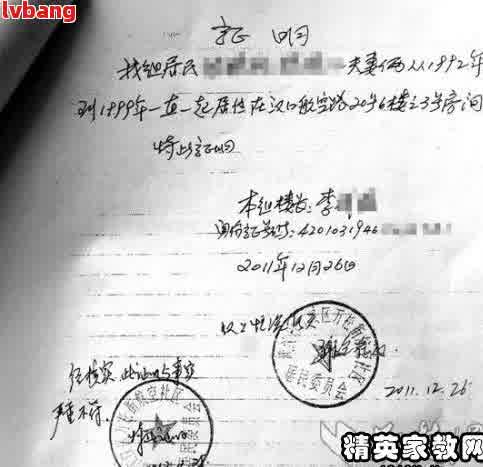 lvbang
证 明
我组居民 夫妻俩从1992年
到1999年一直一起居住在汉口航空路20号6楼之3号房间
特此证明
本组楼长:李
身份证号码:4201031946
2011年12月26日
以上情况属实
居民委员会
2011.12.26
经核实,此证明与事实
严重不符。
航空社区
居民委员会
精英家教网